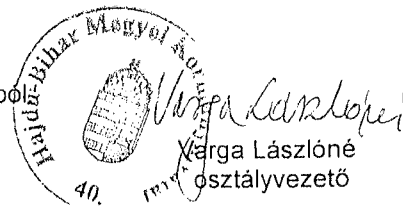 Hajdú-Bihar Megyei
40.
ból
Varga Lászlóné
Varga Lászlóné
osztályvezető